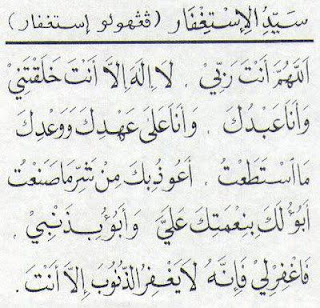 سَيِّدُ الإِسْتِغْفَار (ڤڠهولو إستغفار)
اَللّٰهُمَّ اَنْتَ رَبِّيْ . لَا اِلٰهَ اِلَّا اَنْتَ خَلَقْتَنِيْ
وَاَنَا عَبْدُكَ . وَاَنَا عَلَى عَهْدِكَ وَوَعْدِكَ
مَا اسْتَطَعْتُ . اَعُوْذُ بِكَ مِنْ شَرِّ مَا صَنَعْتُ
اَبُوْءُ لَكَ بِنِعْمَتِكَ عَلَيَّ وَاَبُوْءُ بِذَنْبِيْ .
فَاغْفِرْ لِيْ فَاِنَّهُ لَا يَغْفِرُ الذُّنُوْبَ اِلَّا اَنْتَ .